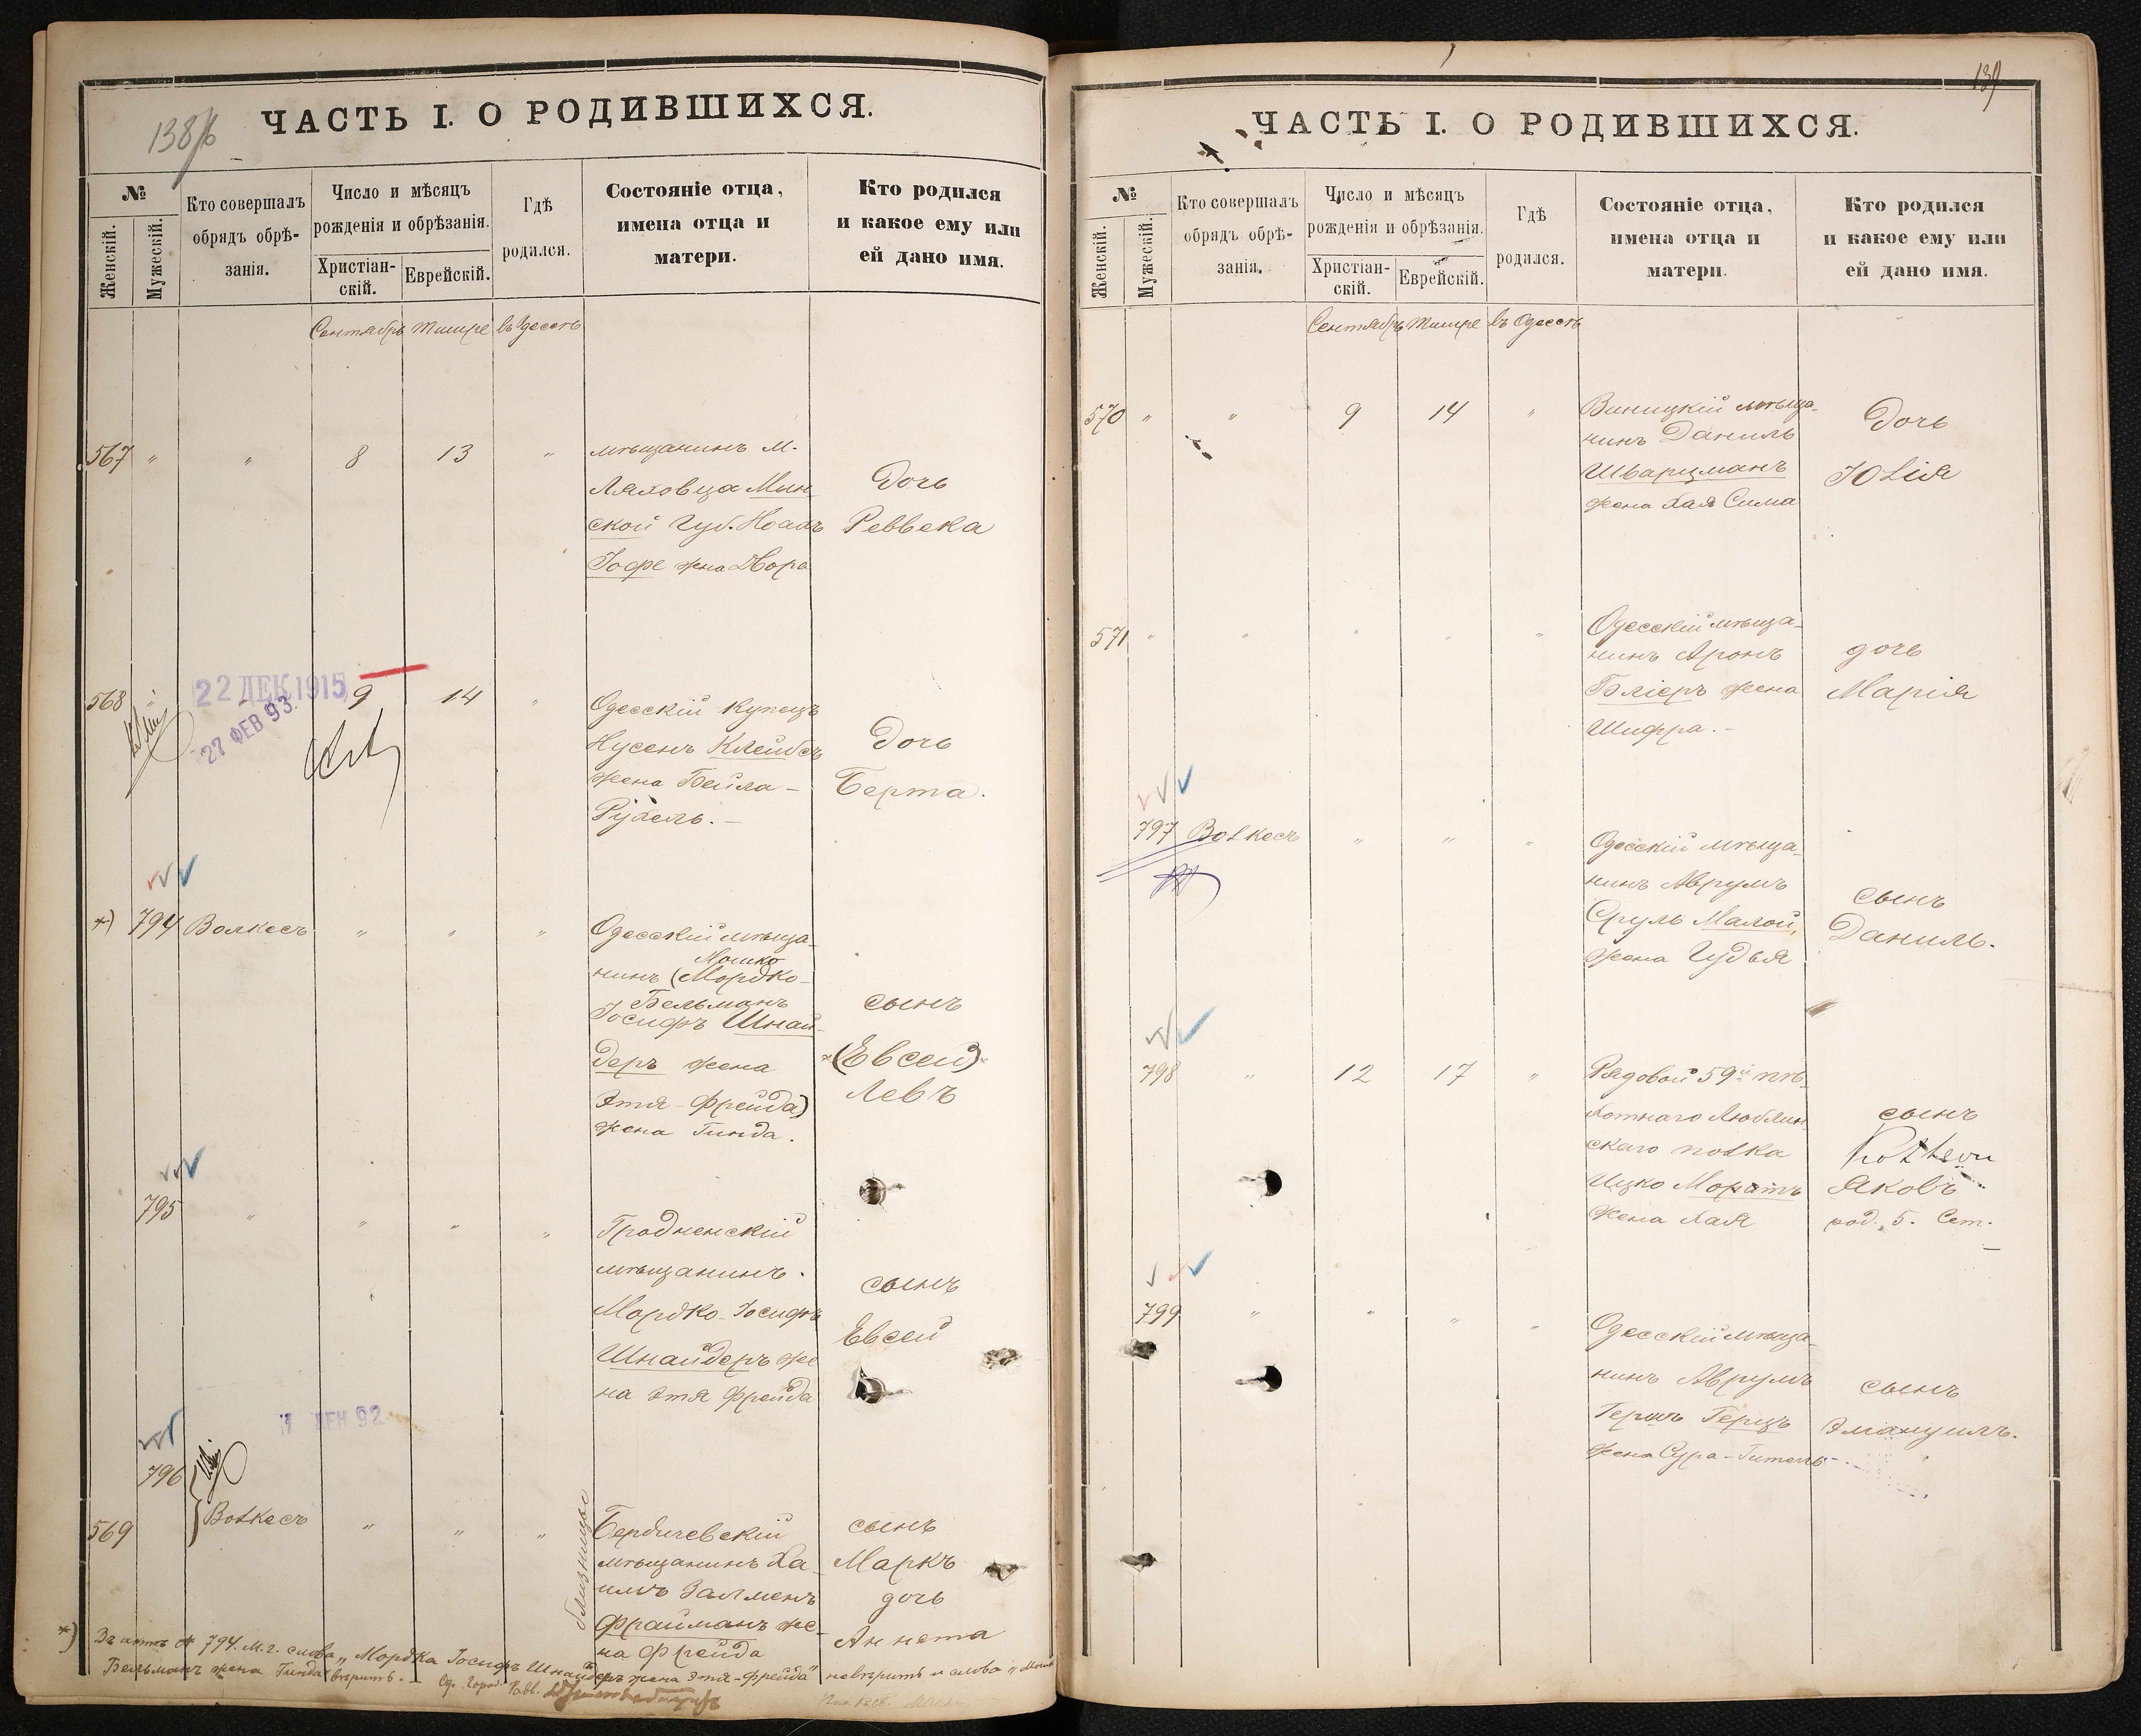 138/б
ЧАСТЬ I. О РОДИВШИХСЯ.
№
Женскій.
Мужескій.
Кто совершалъ
обрядъ обрѣ-
занія.
Число и мѣсяцъ
рожденія и обрѣзанія.
Христіан-
скій.
Еврейскій.
Гдѣ
родился.
Состояніе отца,
имена отца и
матери.
Кто родился
и какое ему или
ей дано имя.
Сентябрь Тишре въ Одессѣ
567 " " 8 13 "
мѣщанинъ м.
Ляховца Мин-
ской Губ. Ноахъ
Іофе жена Двора
Дочь
Реввека
568 " 9 14 "
22 ДЕК 1915
27 ФЕВ 93.
Одесскій купецъ
Нусенъ Клейбсъ
жена Бейла-
Рухель.-
Дочь
Берта.
*) 794 Волкесъ " " "
Одесскій мѣща-
Мошко
нинъ (Мордко-
Бельманъ
Іосифъ Шнай-
деръ жена
Этя-Фрейда)
жена Гинда.
сынъ
(Евсей)
Левъ
795 " " " "
Гродненскій
мѣщанинъ.
Мордко-Іосифъ
Шнайдеръ же
на Этя Фрейда
сынъ
Евсей
92
796
569
Волкесъ " " "
близнецы
Бердичевскій
мѣщанинъ Ха-
имъ Залменъ
Фрайманъ же-
на Фрейда
сынъ
Маркъ
дочь
Аннета
*) Въ актѣ № 794. м.г. слова „Мордка Іосифъ Шнайдеръ жена Этя-Фрейда" невѣрить и слова „Мошко
Бельманъ жена Гинда" вѣрить. - Од. Город. Равв.
139
ЧАСТЬ I. О РОДИВШИХСЯ.
№
Женскій.
Мужескій.
Кто совершалъ
обрядъ обрѣ-
занія.
Число и мѣсяцъ
рожденія и обрѣзанія.
Христіан-
скій.
Еврейскій.
Гдѣ
родился.
Состояніе отца,
имена отца и
матери.
Кто родился
и какое ему или
ей дано имя.
Сентябрь Тишре въ Одессѣ
570 " " 9 14 "
Виницкій мѣща-
нинъ Даниль
Шварцманъ
жена Хая Сима
Дочь
Юлія
571 " " " " "
Одесскій мѣща-
нинъ Аронъ
Бліеръ жена
Шифра.-
дочь
Марія
797 Волкесъ " " "
Одесскій мѣща-
нинъ Аврумъ
Сруль Малой,
жена Гудья
сынъ
Даниль.
798 " 12 17 "
Рядовой 59й пѣ-
хотнаго Люблин-
скаго полка
Ицко Моратъ
жена Хая
сынъ
Яковъ
род. 5. Сет.
799 " " " "
Одесскій мѣща-
нинъ Аврумъ
Гершъ Герцъ
жена Сура-Гитель
сынъ
Эмануилъ.